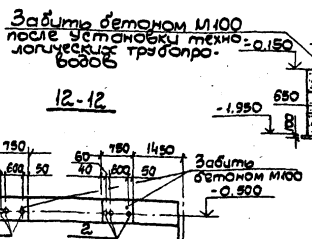 Забить бетоном М100
после установки техно-
логических трубопро-
водов
-0.150
12-12
-1.950
650
750
60
750
1450
600
50
40
600
50
Забить
бетоном М100
-0.500
2